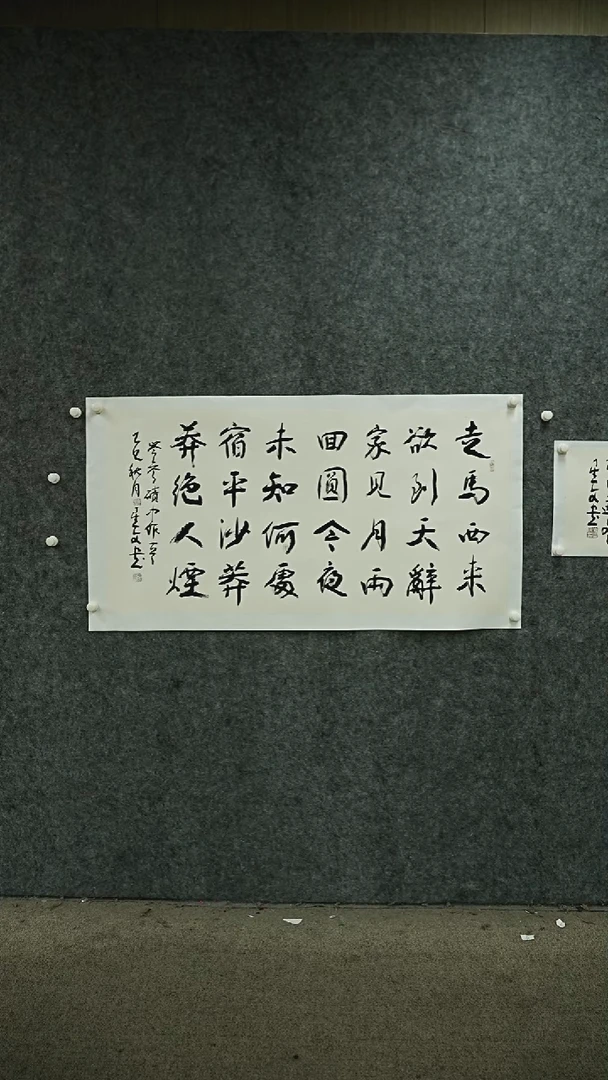 走馬西来
欲到天辭
家見月兩
回圓今夜
未知何處
宿平沙莽
莽絕人煙
岑參磧中作一首
乙巳秋月